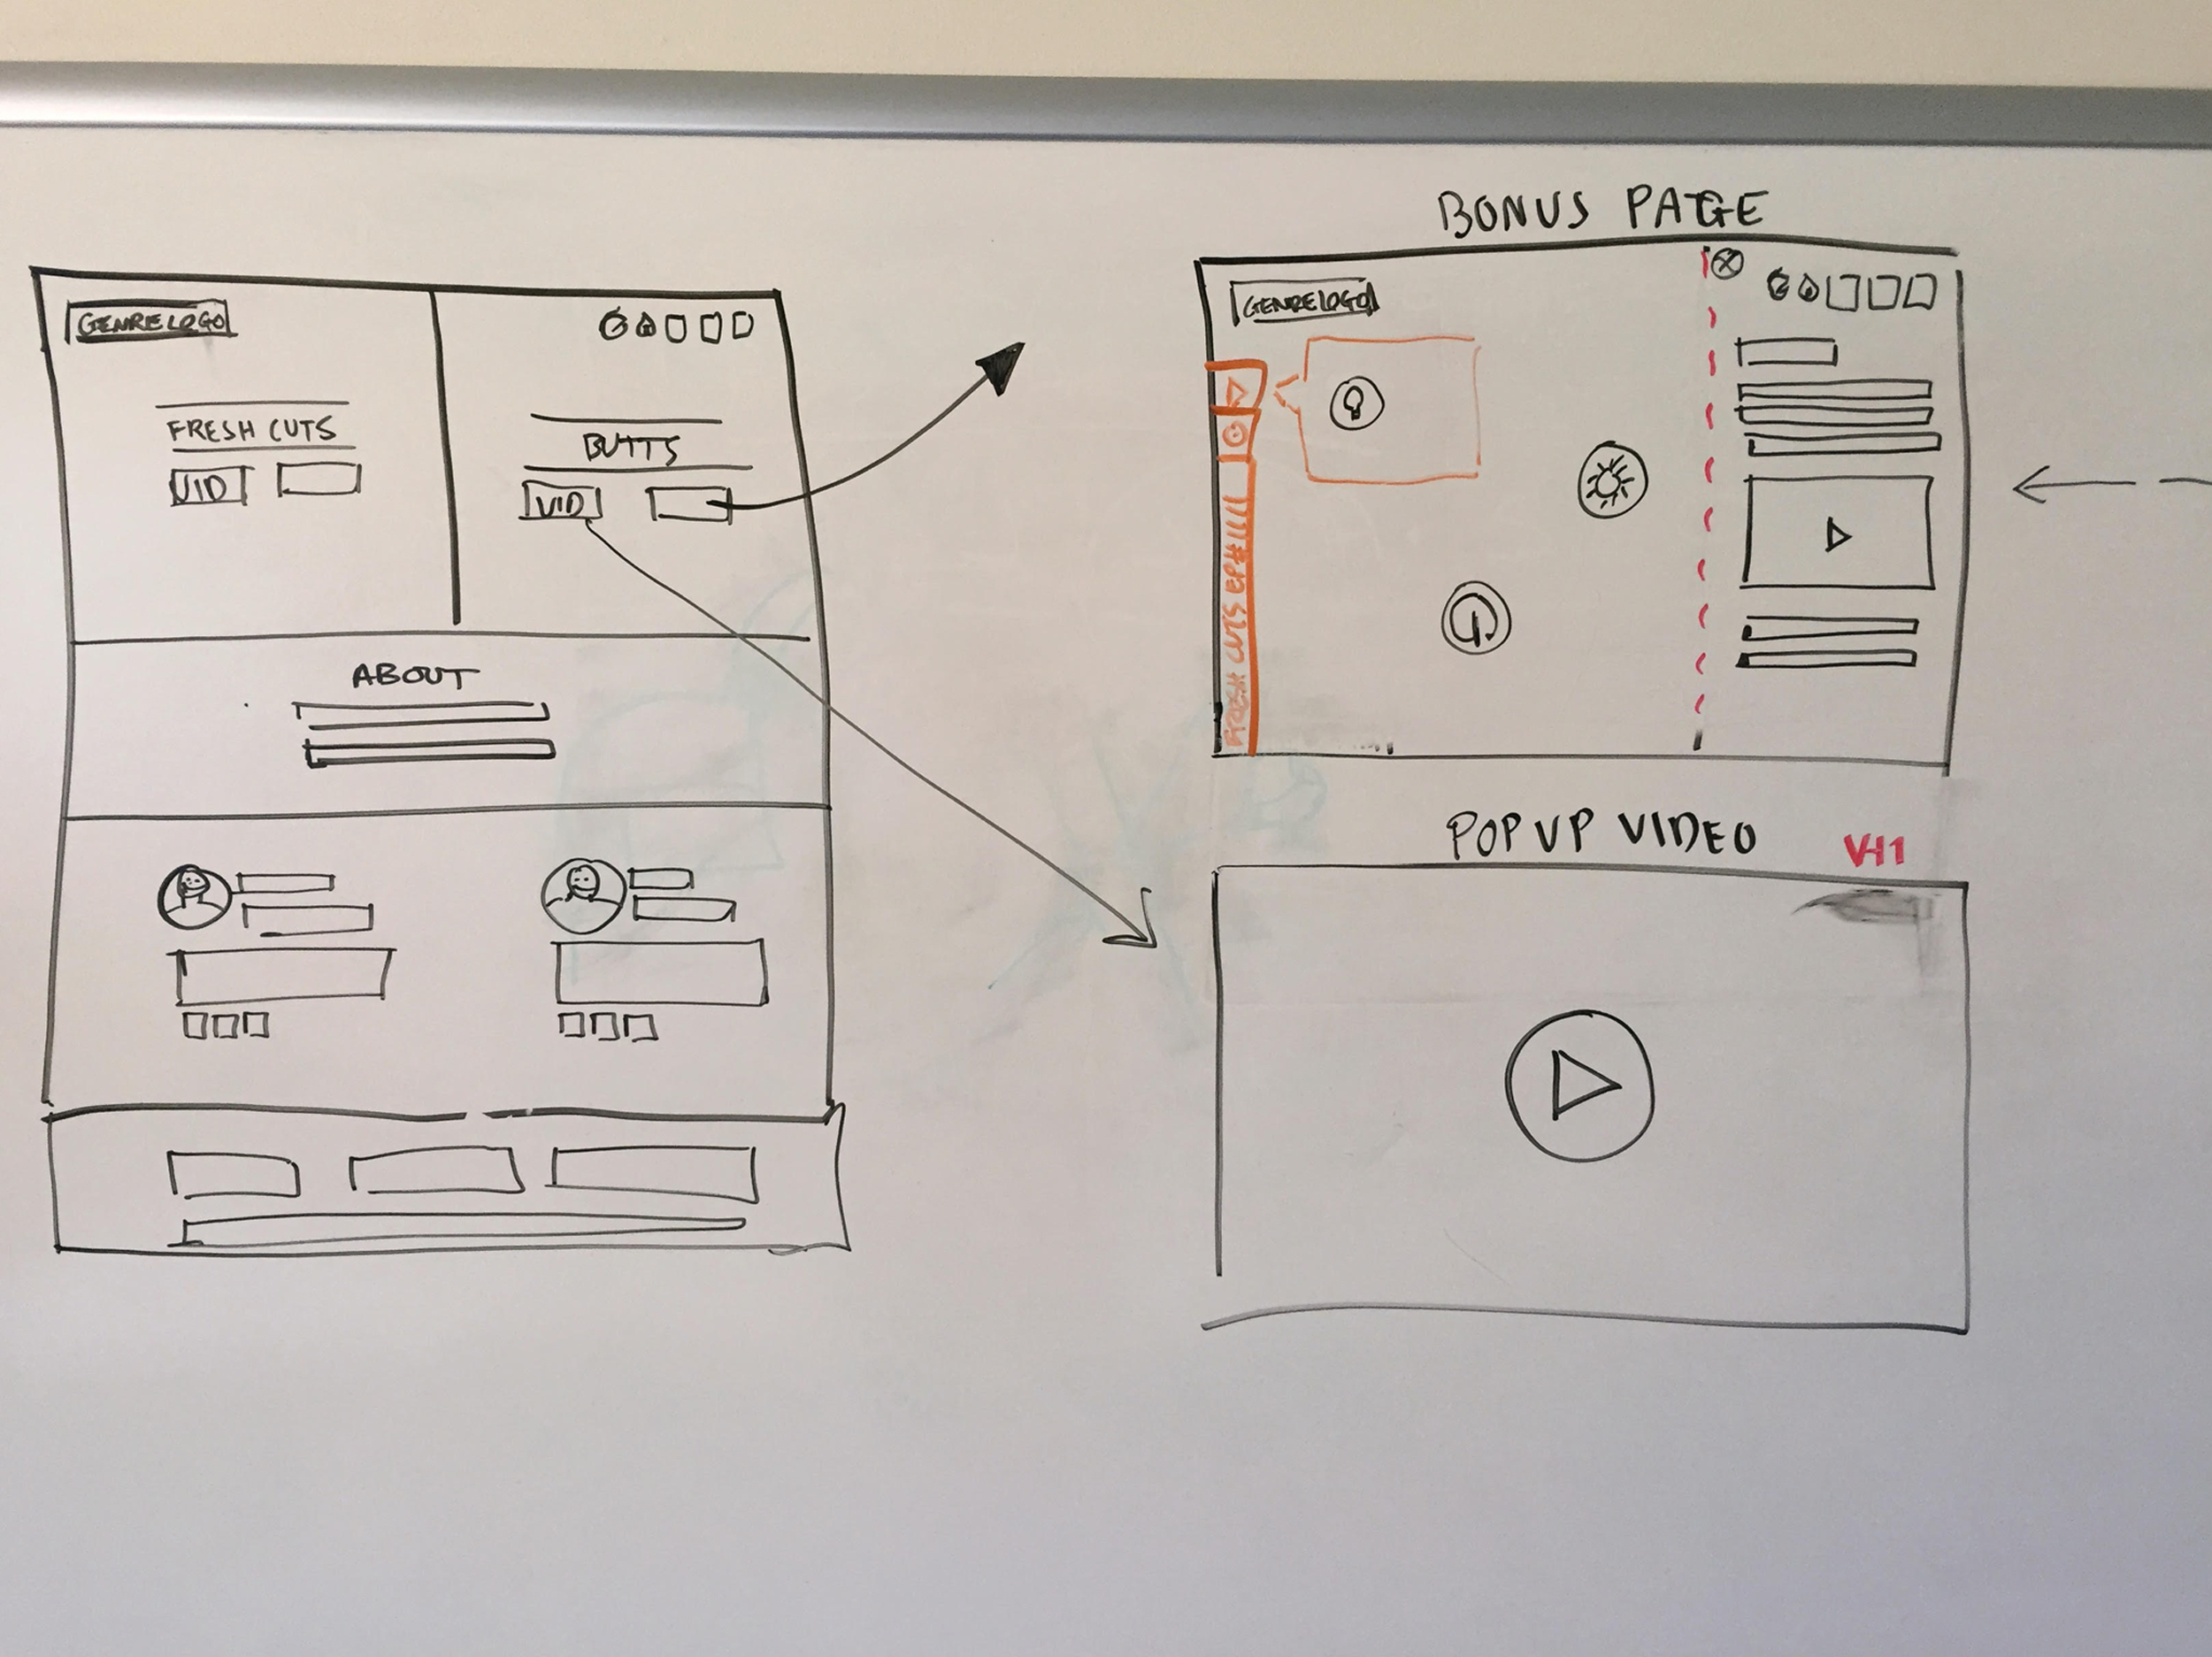 GENRE LOGO
FRESH CUTS
VID
BUTTS
VID
ABOUT
BONUS PAGE
GENRE LOGO
FRESH CUTS EP#
POP UP VIDEO
VH1